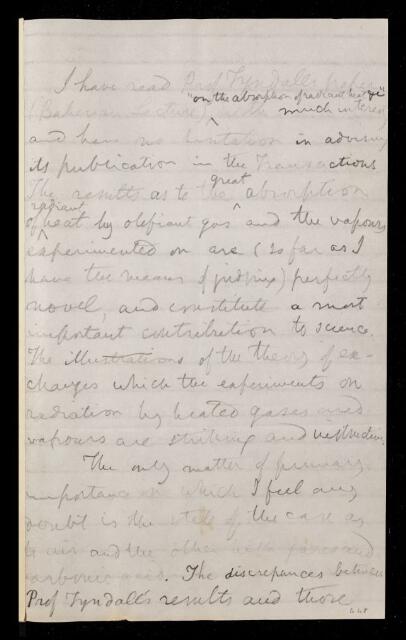 I have read Prof Tyndall's paper
"on the absorption of radiant heat &c"
(Bakerian Lecture), with much interest
and have no hesitation in advising
its publication in the Transactions
The results as to the great absorption
of radiant heat by olefiant gas and the vapours
experimented on are (so far as I
have the means of judging) perfectly
novel, and constitute a most
important contribution to science.
The illustrations of the theory of ex-
changes which the experiments on
radiation by heated gases and
vapours are striking and instructive.
The only matter of primary
importance on which I feel any
doubt is the state of the case as
to air and the other
carbonic acid. The discrepances between
Prof Tyndall's results and those